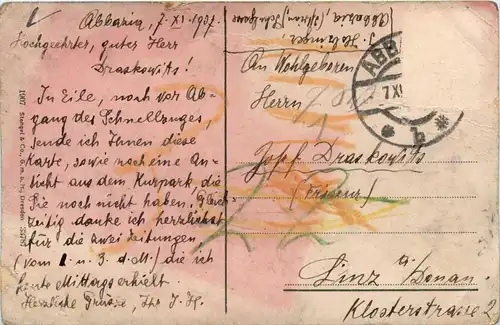 Abbazia, 7. XI. 1937.
Hochgeehrter, guter Herr
Draskowits!
In Eile, noch vor Ab-
gang des Schnellzuges,
sende ich Ihnen diese
Karte, sowie noch eine An-
sicht aus dem Kurpark, die
Sie noch nicht haben. Gleich-
zeitig danke ich herzlichst
für die zwei Zeitungen
(vom 1. u. 3. d. M.) die ich
heute Mittags erhielt.
Herzliche Grüsse, Ihr J. H.
1907 Stengel & Co., G. m. b. H., Dresden
J. Holzinger,
Abbazia,
An Wohlgeboren
Herrn
Josef Draskowits
(Friseur)
Linz a/Donau.
Klosterstrasse 2
ABB
7 XI
b